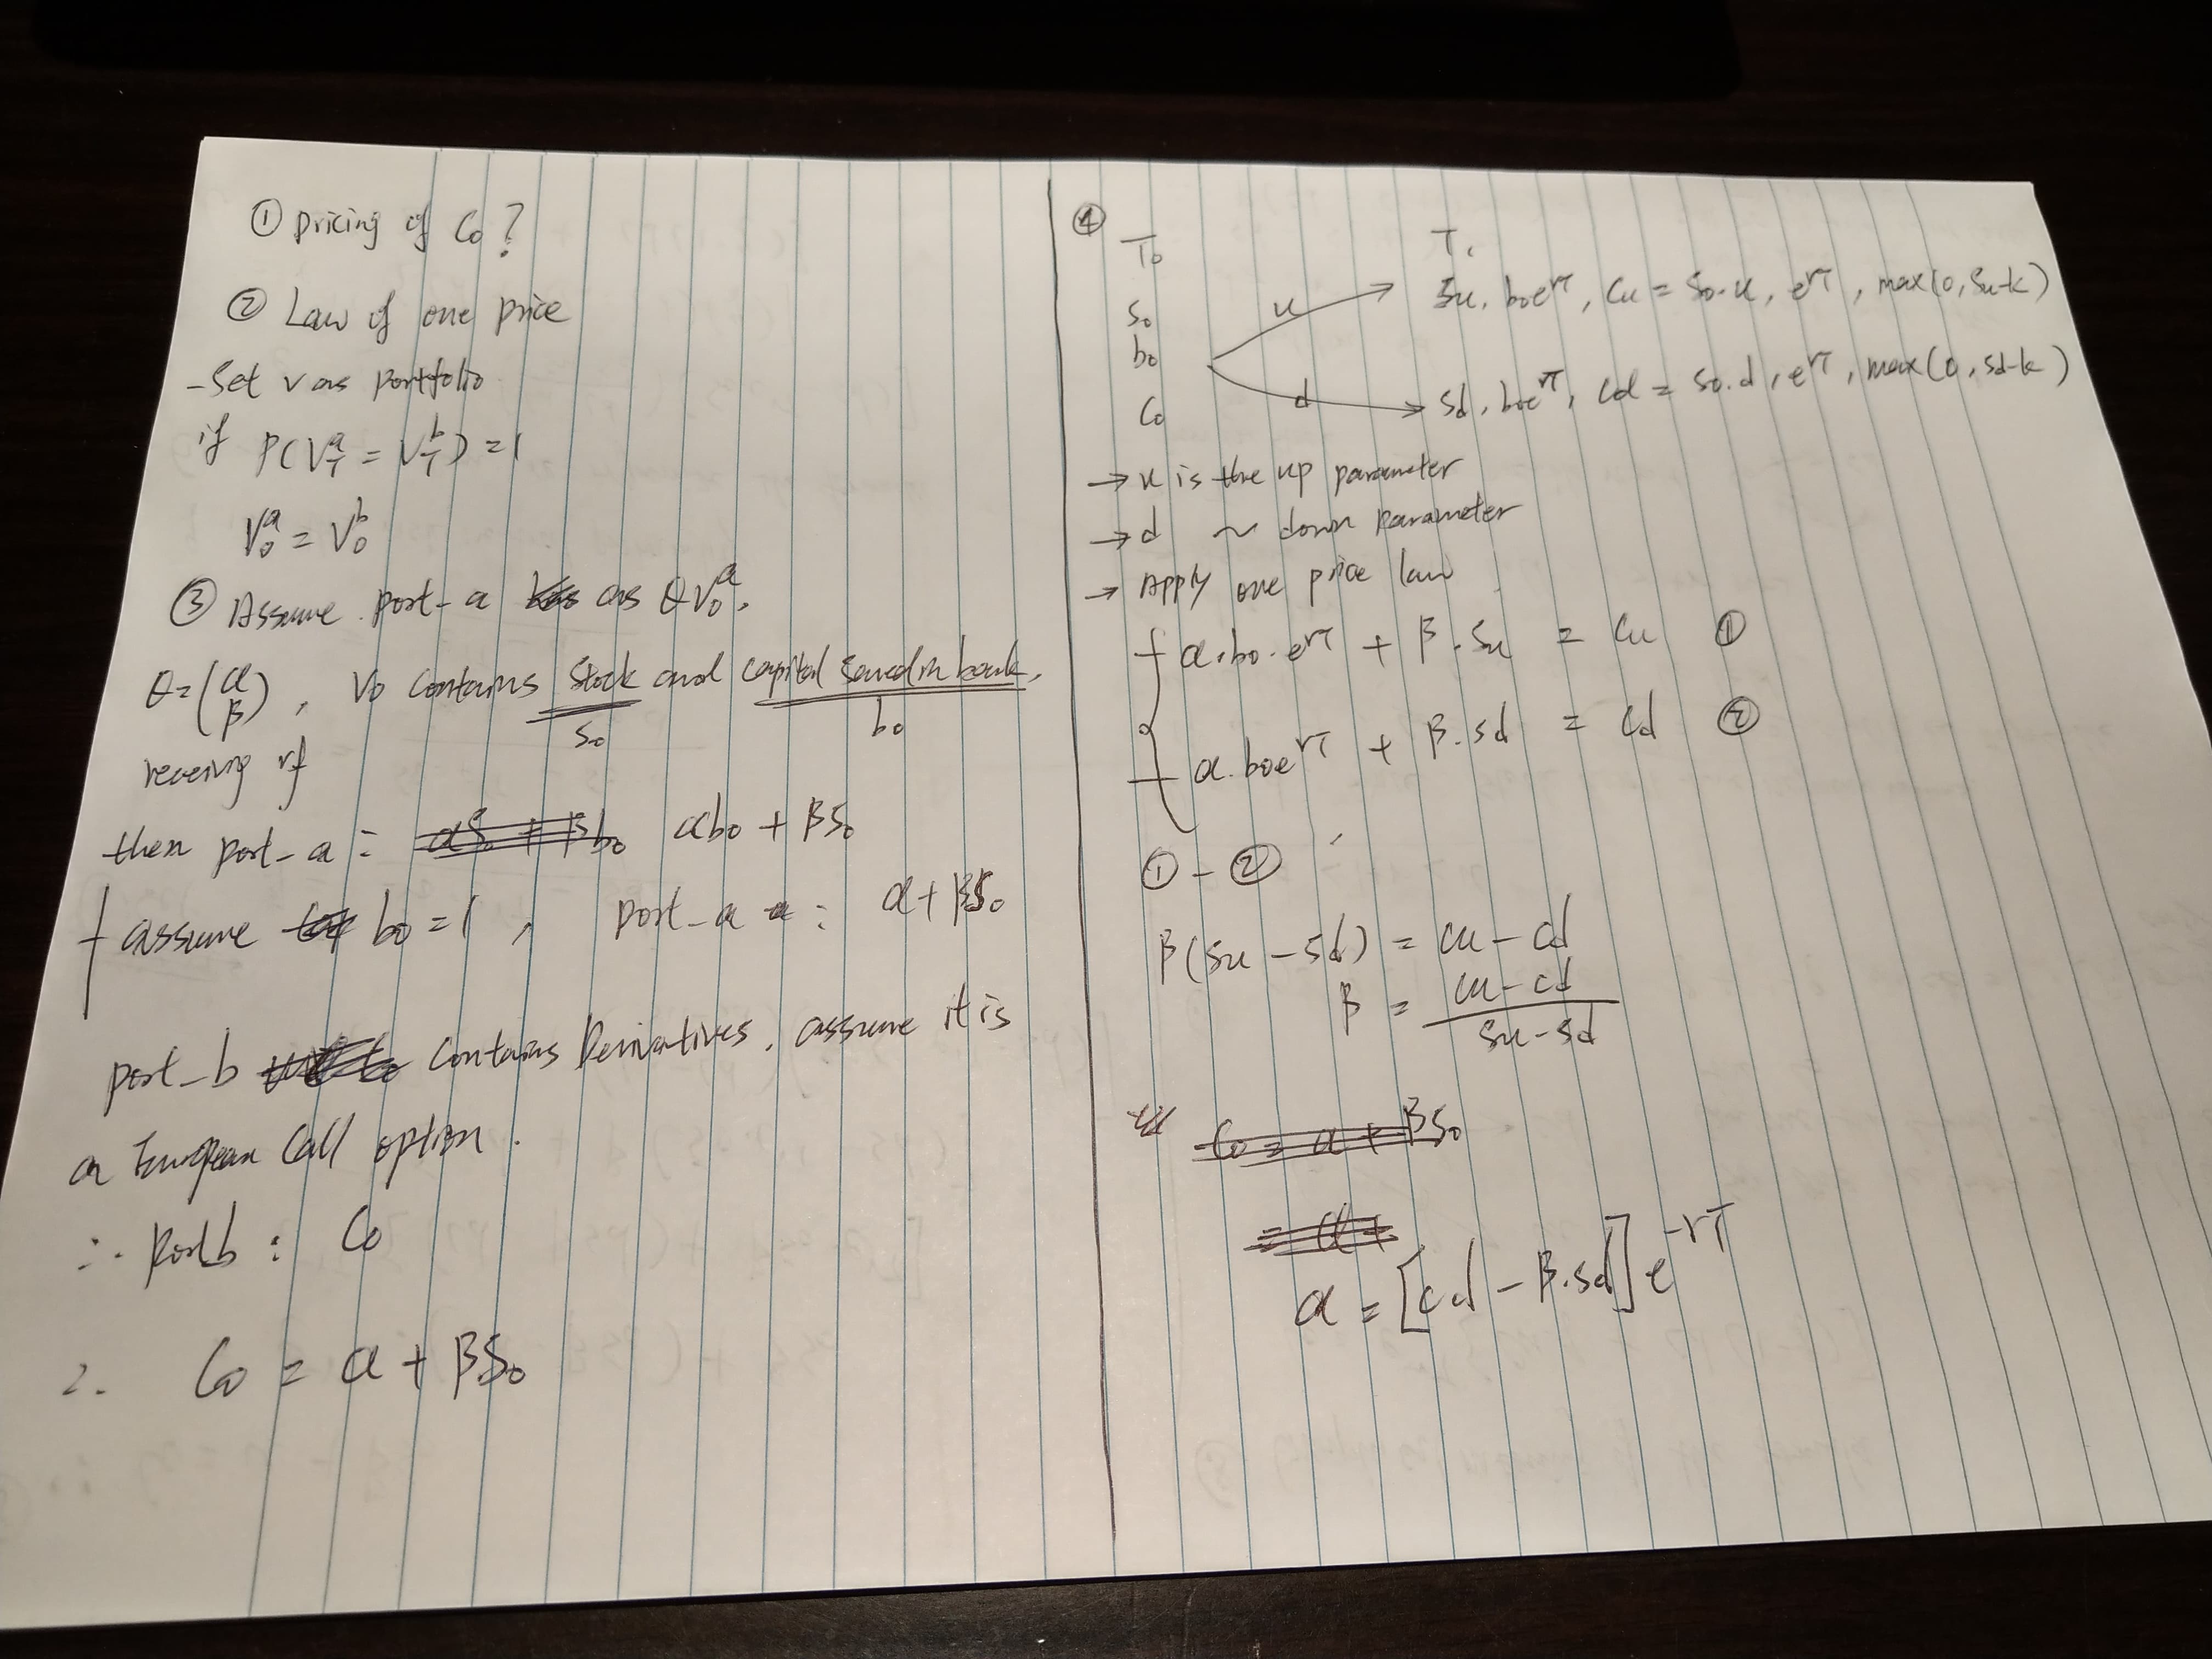 ① pricing of C₀?
② Law of one price
- Set V as portfolio
if P(V_T^a = V_T^b) = 1
V_0^a = V_0^b
③ Assume port-a as θV_0^a,
θ = (α β), V₀ contains stock and capital saved in bank,
S₀ b₀
receiving rf
then port-a : αS₀ + βb₀ αb₀ + βS₀
assume b₀ = 1, port-a : α + βS₀
port-b contains Derivatives, assume it is
a European Call option.
∴ Port b : C₀
∴ C₀ = α + βS₀
④
T₀ T₁
S₀ u Su, b₀e^{rT}, Cu = S₀·u, e^{rT}, max(0, Su-k)
b₀
C₀ d Sd, b₀e^{rT}, Cd = S₀·d, e^{rT}, max(0, Sd-k)
→ u is the up parameter
→ d ~ down parameter
→ Apply one price law
α·b₀·e^{rT} + β·Su = Cu ①
α·b₀e^{rT} + β·Sd = Cd ②
① - ②
β(Su - Sd) = Cu - Cd
β = (Cu - Cd)/(Su - Sd)
C₀ = α + βS₀
= α +
α = [Cd - β·Sd]e^{-rT}